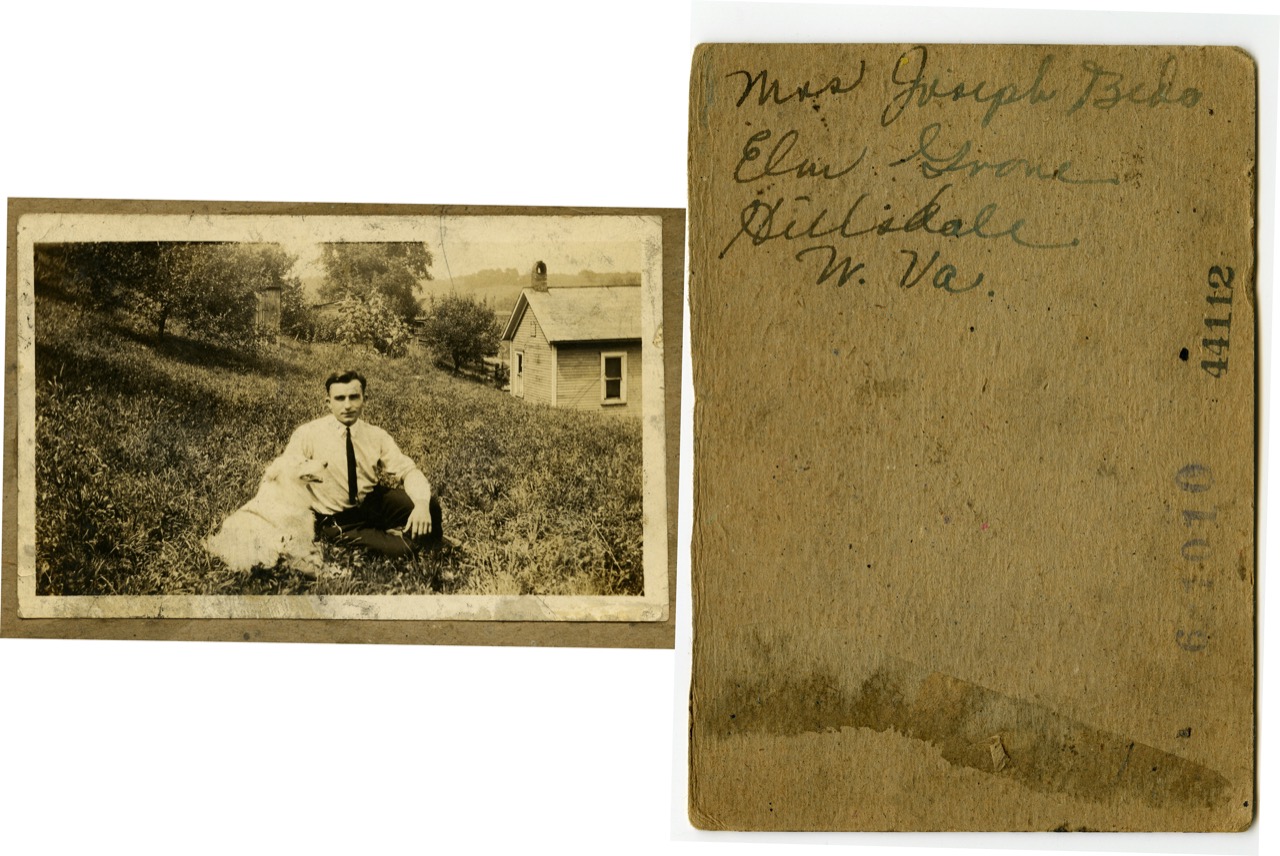 Mrs Joseph Bedo
Elm Grove
Hillsdale
W. Va.
44112